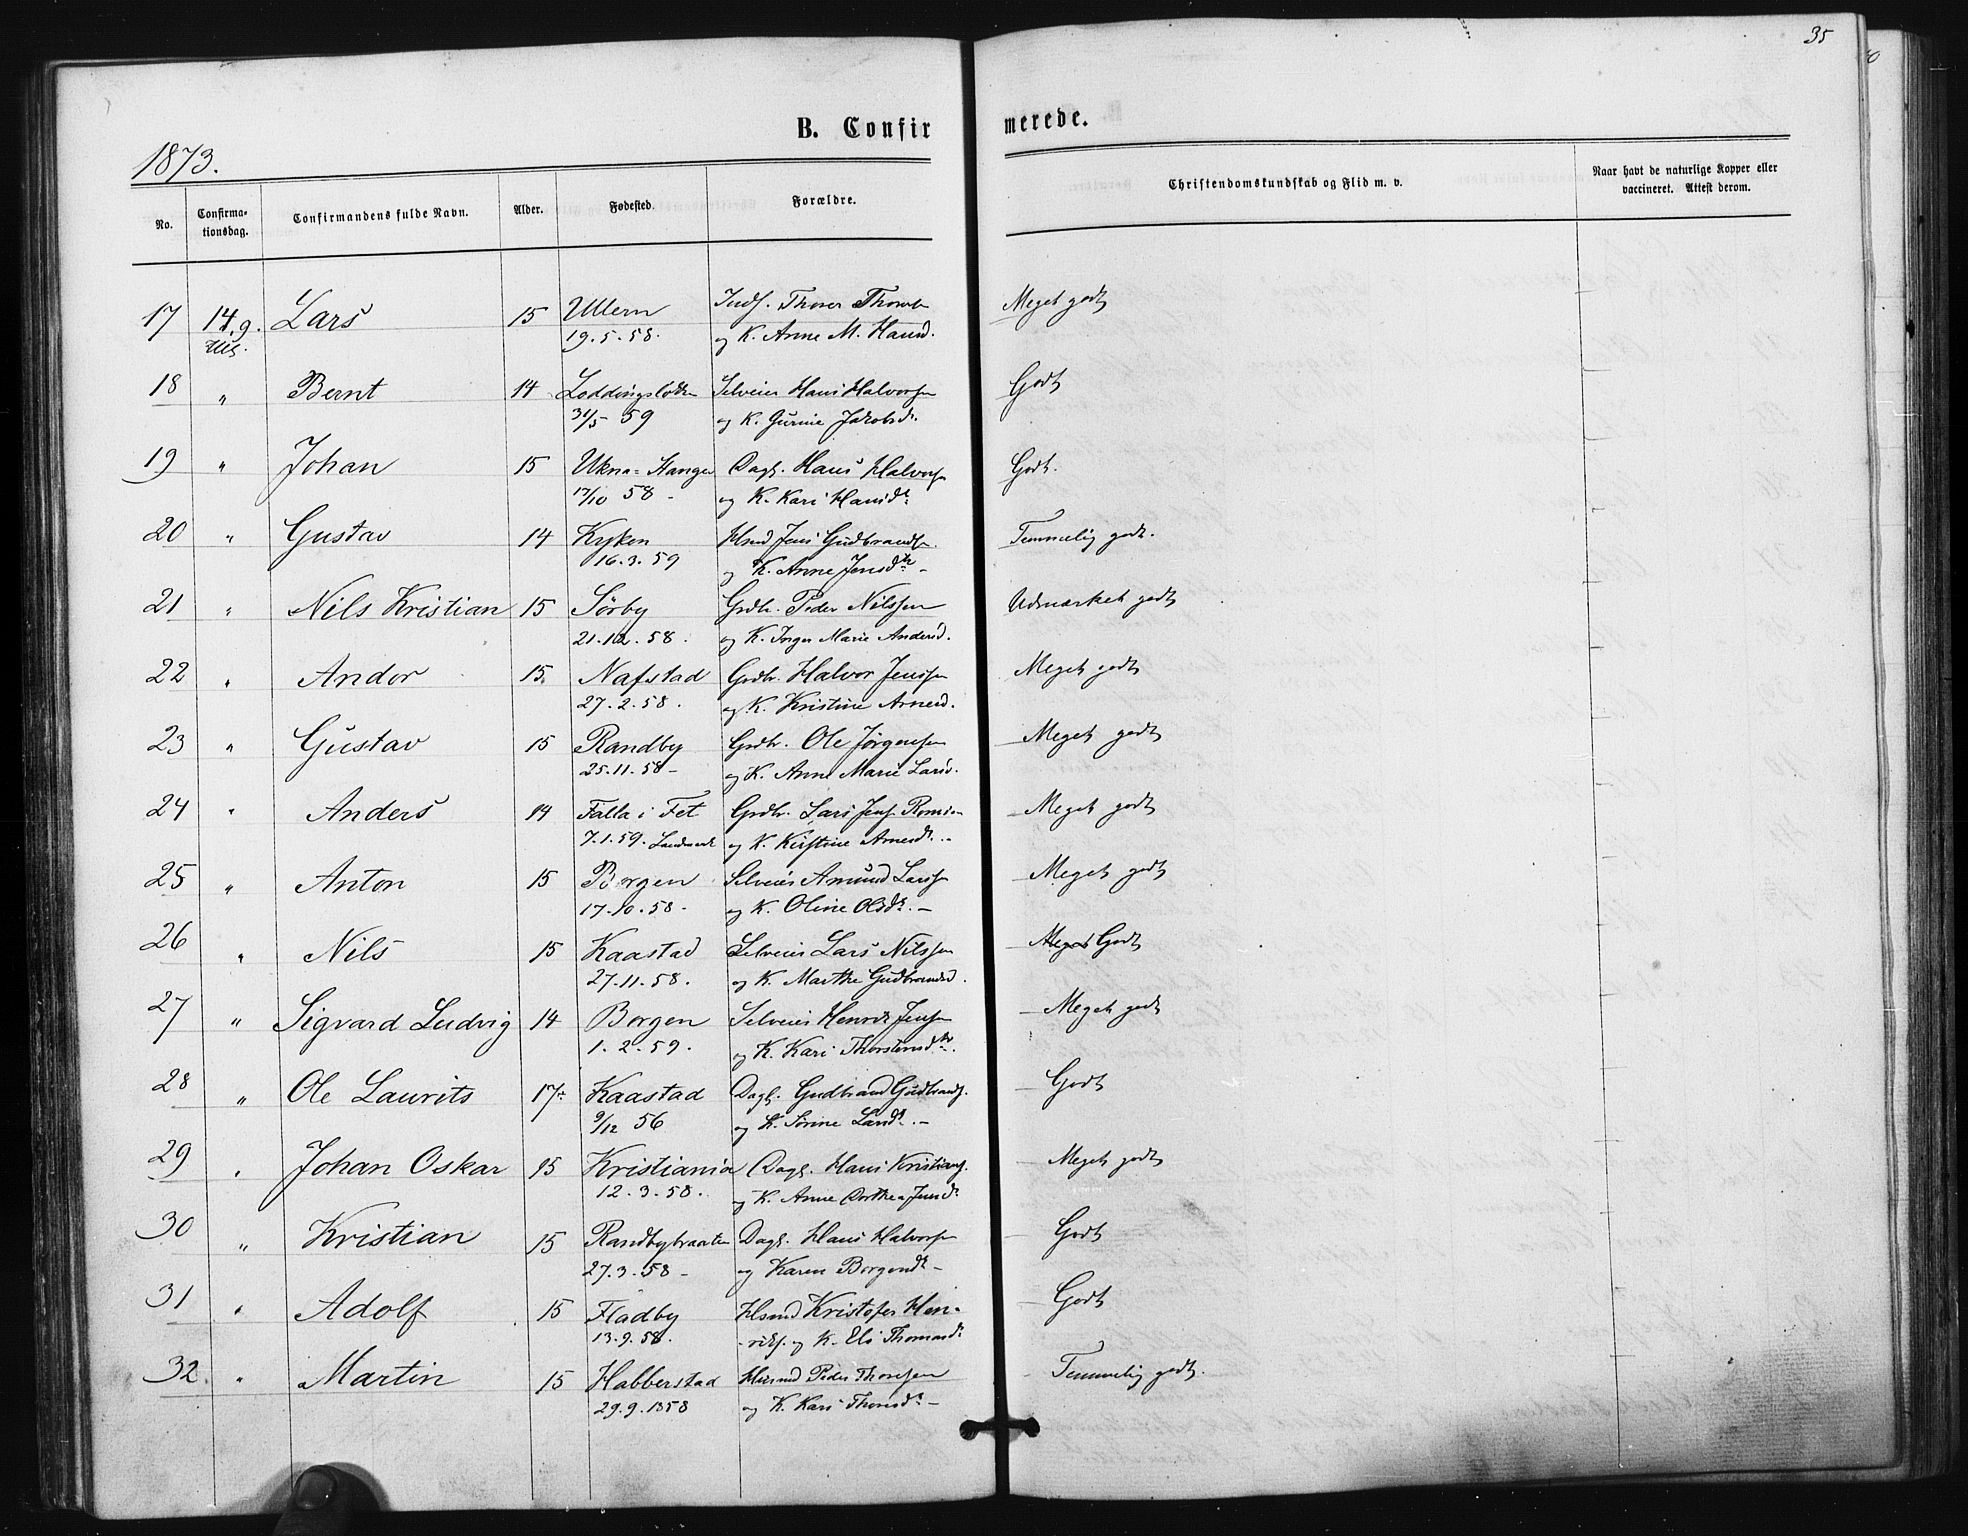 35
B. Confirmerede.
1873.
No. Confirmationsdag. Confirmandens fulde Navn. Alder. Fødested. Forældre. Christendomskundskab og Flid m. v. Naar havt de naturlige Kopper eller vaccineret. Attest derom.
17 14.9. Lars 15 Ullern Thorer Meget godt
19.5.58. og K. Anne M. Hansd.
18 " Bernt 14 Selveier Hans Halvorsen Godt
31/5 59 og K. Gurine Jakobsd.
19 " Johan 15 Dagl. Hans Halvorsen Godt.
17/10 58 - og K. Kari Hansdr.
20 " Gustav 14 Kyken Hsmd Jens Gudbrands. Temmelig godt.
16.3.59 og K. Anne Jensdtr -
21 " Nils Kristian 15 Sörby Grdbr. Peder Nilssen Udmærket godt
21.12.58. og K. Inger Marie Andersd.
22 " Andor 15. Nafstad Grdbr. Halvor Jenssen Meget godt
27.2.58. og K. Kristine Arnesd.
23 " Gustav 15 Randby Grdbr. Ole Jörgensen Meget godt
25.11.58 - og K. Anne Marie Larsd.
24 " Anders 14 Falla i Fet Grdbr. Lars Jens. Meget godt
7.1.59. og K. Kirstine Arnesdr. -
25 " Anton 15 Borgen Selveier Amund Larss Meget godt
17.10.58. og K. Oline Olsdr. -
26 " Nils 15 Kaastad Selveier Lars Nilssen Godt
27.11.58. og K. Marthe Gudbrandsd.
27 " Sigvard Ludvig 14 Borgen Selveier Henrik Jenss Meget godt
1.2.59. og K. Kari Thorstensdtr.
28 " Ole Laurits 17 Kaastad Dagl. Gudbrand Gudbrands. Godt
9/12 56 og K. Sörine Larsdr. -
29 " Johan Oskar 15 Kristiania Dagl. Hans Kristians. Meget godt
12.3.58. og K. Anne Dorthea Jensdr
30 " Kristian 15 Randbybraaten Dagl. Hans Halvorsen Godt
27.3.58 - og Karen Borgersdr -
31 " Adolf 15 Fladby Hsmd Kristofer Hen- Godt
13.9.58. -riks. og K. Eli Thomasdr
32. " Martin 15 Habberstad Husmd Peder Thoresen Temmelig godt.
29.9.1858 og K. Kari Thoresdr -